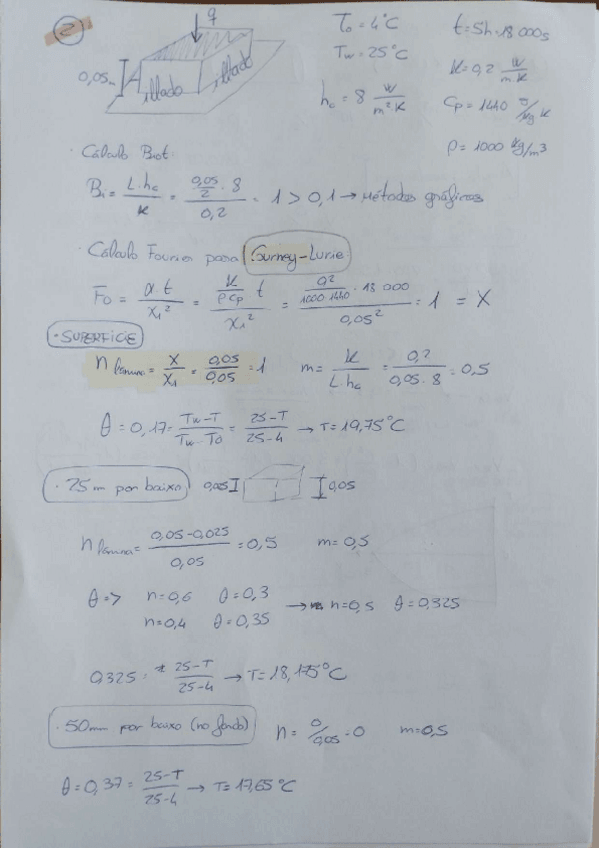 2
q
T₀ = 4°C
t = 5h = 18 000s
0,05m
illado
illado
Tw = 25°C
K = 0,2 W/m·K
h₀ = 8 W/m²·K
Cp = 1440 J/kg K
ρ = 1000 kg/m³
· Cálculo Biot:
Bi = L·h₀/K = (0,05/2 · 8)/0,2 = 1 > 0,1 → Métodos gráficos
· Cálculo Fourier para Gurney-Lurie:
Fo = α·t/x₁² = (K/ρCp t)/x₁² = (0,2/1000·1440 · 18 000)/0,05² = 1 = X
· SUPERFICIE
n lámina = x/x₁ = 0,05/0,05 = 1   m = K/L·h₀ = 0,2/0,05·8 = 0,5
θ = 0,17 = Tw-T/Tw-T₀ = 25-T/25-4 → T = 19,75°C
· 25mm por baixo   0,05   0,05
n lámina = 0,05-0,025/0,05 = 0,5   m = 0,5
θ => n = 0,6   θ = 0,3
n = 0,4   θ = 0,35
→ n = 0,5   θ = 0,325
0,325 = 25-T/25-4 → T = 18,175°C
· 50mm por baixo (no fondo)   n = 0/0,05 = 0   m = 0,5
θ = 0,37 = 25-T/25-4 → T = 17,65°C